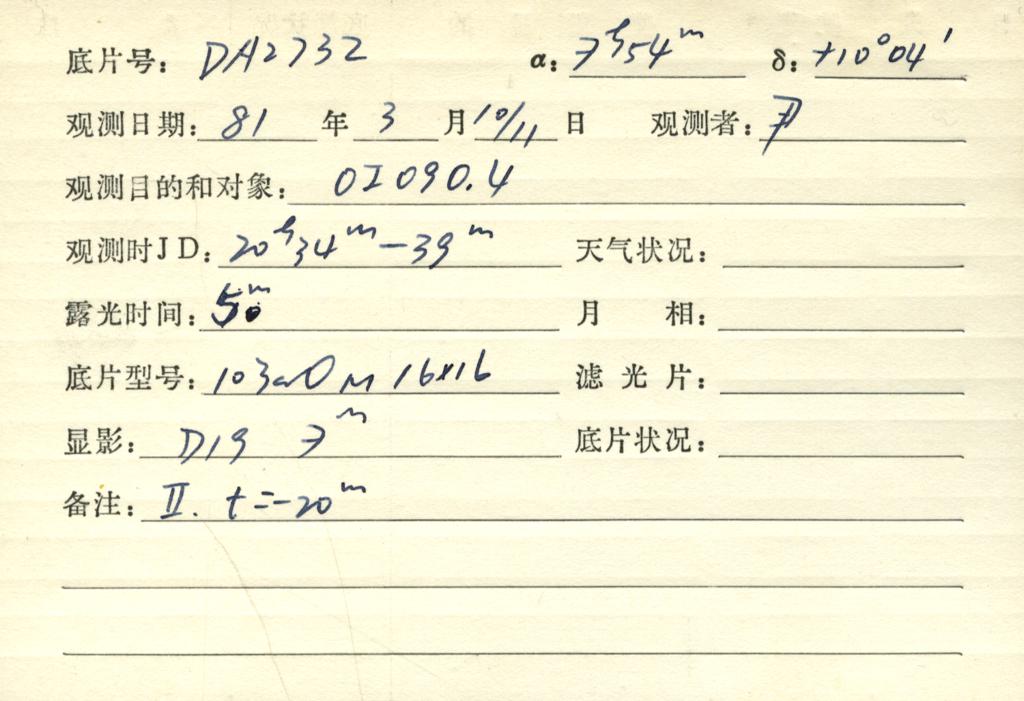 底片号: DA2732 α: 7ʰ54ᵐ δ: +10°04′
观测日期: 81 年 3 月 10/11 日 观测者:
观测目的和对象: OI090.4
观测时JD: 20ʰ34ᵐ—39ᵐ 天气状况:
露光时间: 5ᵐ 月 相:
底片型号: 103aO N 16×16 滤光片:
显影: D19 7ᵐ 底片状况:
备注: II. t=-20ᵐ